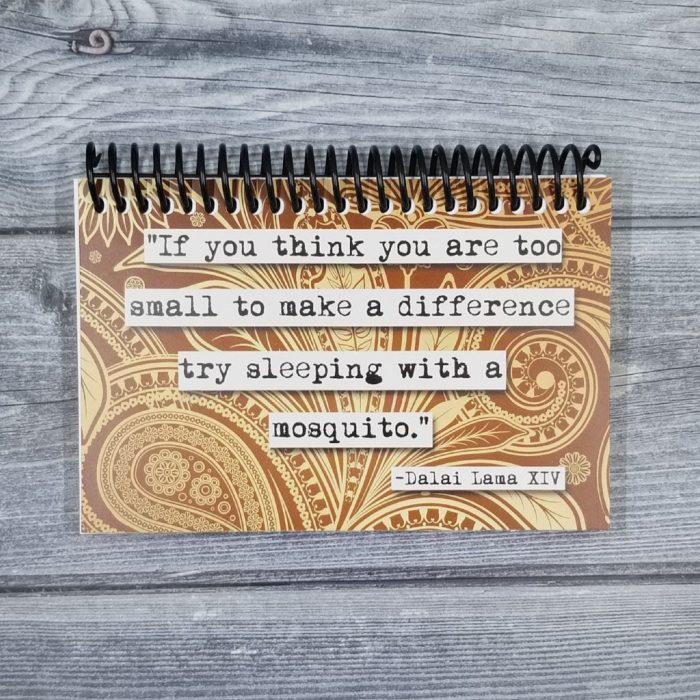 "If you think you are too
small to make a difference
try sleeping with a
mosquito."
-Dalai Lama XIV